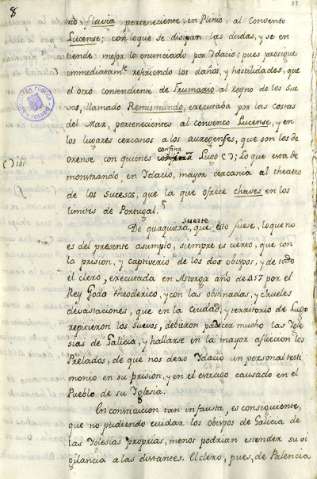 8
do, y Lavia perteneciente en Plinio al Convento
Lucense; con lo que se disipan las dudas, y se en
tiende mejor lo enunciado por Idacio; pues prosigue
immediatamte refiriendo los daños, y hostilidades, que
el otro contendiente de Frumario al Reyno de los Sue
vos, llamado Remismundo, executaba por las costas
del Mar, pertenecientes al convento Lucense, y en
los lugares cercanos a los auregenses, que son los de
orense con quienes confina Lugo (7); Lo que está de
monstrando, en Idacio, mayor cercania al theatro
de los sucesos, que la que ofrece chaves en los
limites de Portugal.
De qualquiera suerte que esto fuere, lo que no
es del presente asumpto, siempre es cierto, que con
la prision, y captiverio de los dos obispos, y de todo
el clero, executada en Astorga año de 457 por el
Rey Godo Theodorico, y con las ostinadas, y crueles
devastaciones, que en la ciudad, y territorio de Lugo
repitieron los Suevos, debieron padecer mucho las Igle
sias de Galicia, y hallarse en la mayor afliccion los
Prelados, de que nos dexo Idacio un personal testi
monio en su prision, y en el estrago causado en el
Pueblo de su Iglesia.
En constitucion tan infausta, es consiguiente,
que no pudiendo cuidar los obispos de Galicia de
las Iglesias proprias, menos podrian estender su vi
gilancia a las distantes. El clero, pues, de Palencia